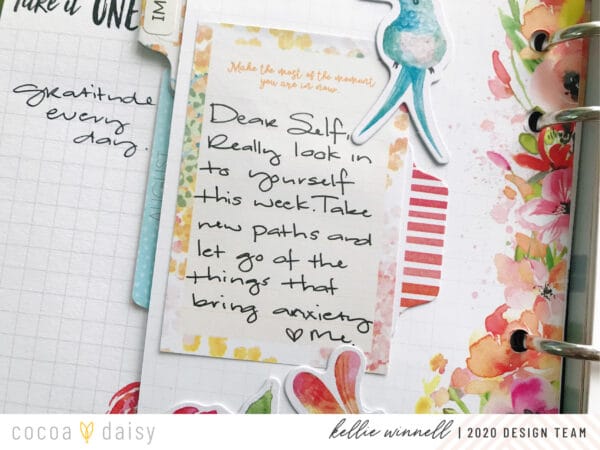 take it ONE
gratitude
every
day.
IM
AUGUST
Make the most of the moment
you are in now.
Dear Self,
Really look in
to yourself
this week. Take
new paths and
let go of the
things that
bring anxiety
♡ Me.
cocoa daisy
kellie winnell | 2020 DESIGN TEAM